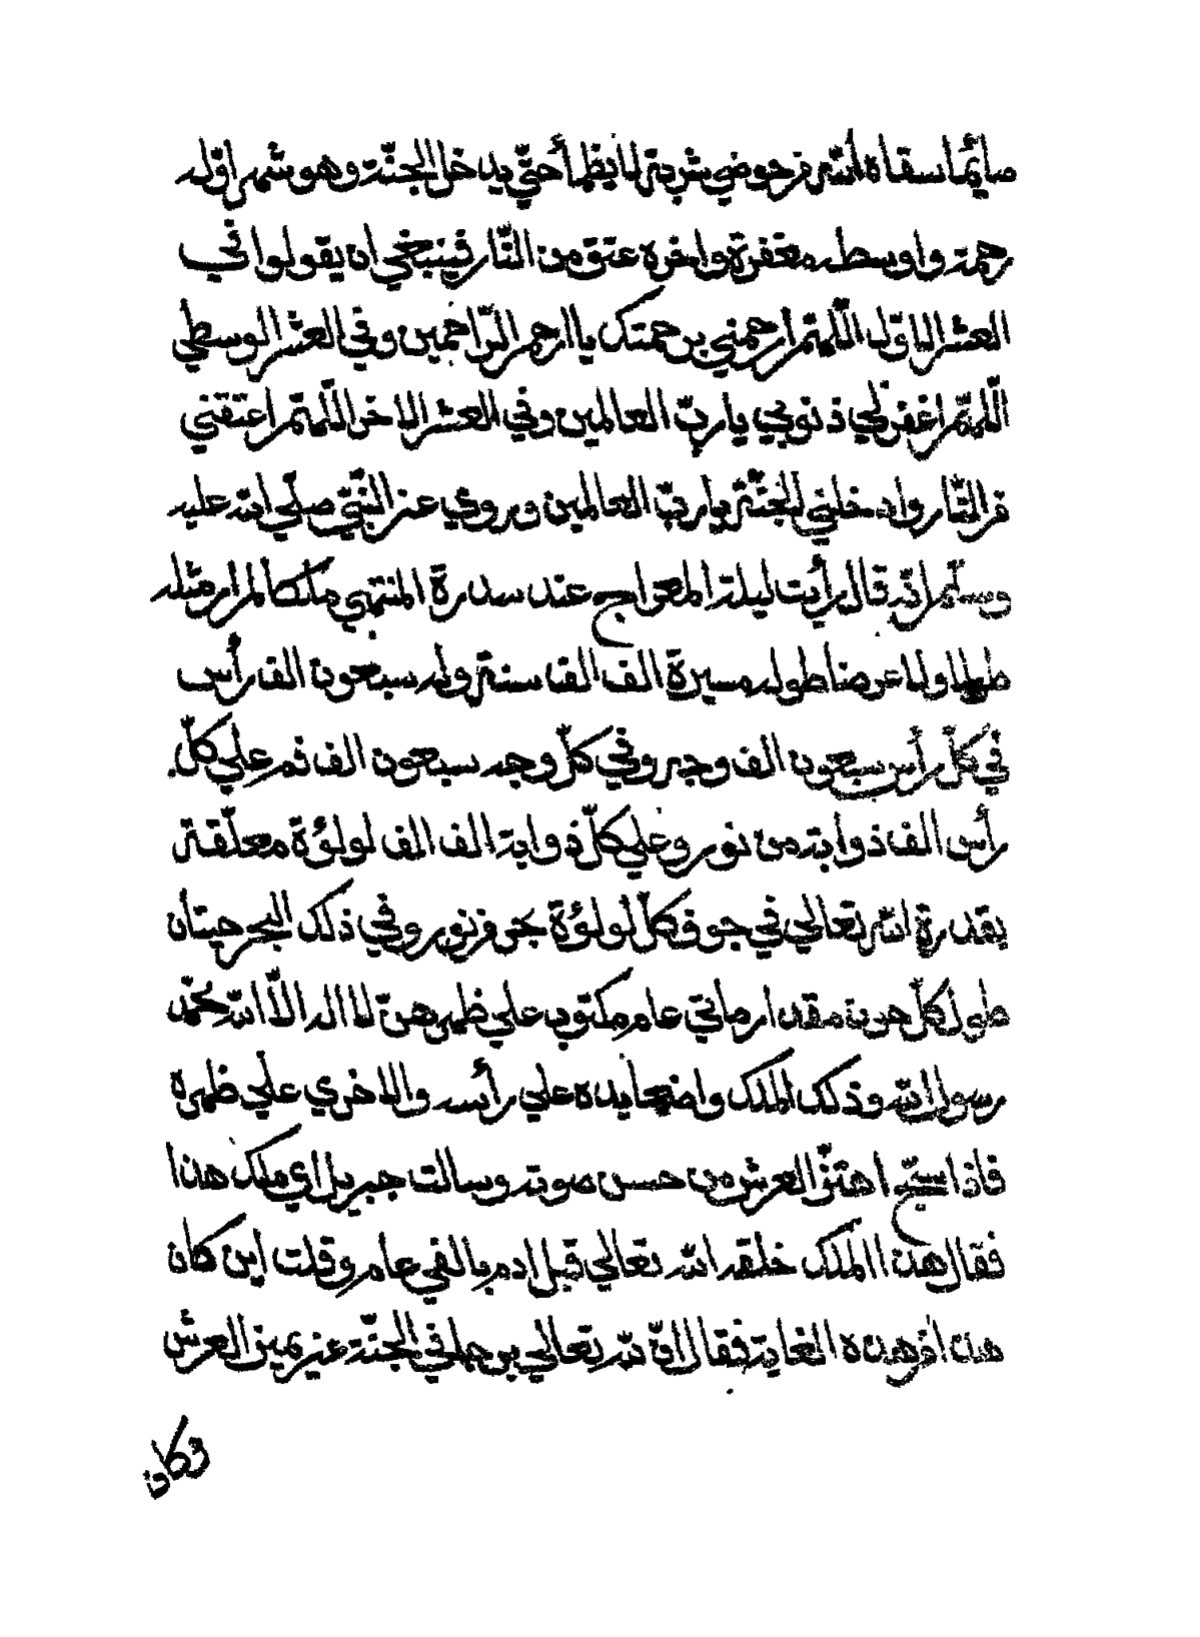 صائما سقاه الله من حوضي شربة لا يظمأ حتّي يدخل الجنّة وهو شهر اوّله
رحمة واوسطه مغفرة واخره عتق من النّار فينبغي ان يقولوا في
العشر الاوّل اللّهمّ ارحمني برحمتك يا ارحم الرّاحمين وفي العشر الوسطي
اللّهمّ اغفرلي ذنوبي يا ربّ العالمين وفي العشر الاخر اللّهمّ اعتقني
من النّار وادخلني الجنّة يا ربّ العالمين وروي عن النّبيّ صلّي الله عليه
وسلّم انّه قال رأيت ليلة المعراج عند سدرة المنتهي ملكا لم ار مثله
طولا ولا عرضا طوله مسيرة الف الف سنة وله سبعون الف رأس
في كلّ رأس سبعون الف وجه وفي كلّ وجه سبعون الف فم علي كلّ
رأس الف ذوابة من نور وعلي كلّ ذوابة الف الف لولؤة معلّقة
بقدرة الله تعالي في جوف كلّ لولؤة بحر من نور وفي ذلك البحر حيتان
طول كلّ حوت مقدار مأتي عام مكتوب علي ظهرهنّ لا اله الاّ الله محمّد
رسول الله وذلك الملك واضعا يده علي رأسه والاخري علي ظهره
فاذا سبّح اهتزّ العرش من حسن صوته وسالت جبريل اي ملك هذا
فقال هذا الملك خلقه الله تعالي قبل ادم بالفي عام وقلت اين كان
هذا الي هذه الغاية فقال انّ لله تعالي مرجا في الجنّة عن يمين العرش
وكان